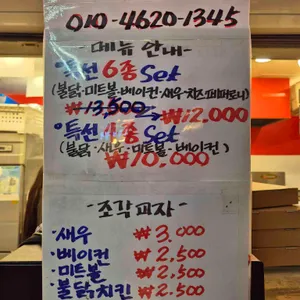 010-4620-1345
-메뉴 안내-
·특선 6종 Set
(불닭·미트볼·베이컨·새우·치즈·페퍼로니)
₩13,500 → ₩12,000
·특선 4종 Set
(불닭·새우·미트볼·베이컨)
₩10,000
-조각피자-
·새우 ₩3,000
·베이컨 ₩2,500
·미트볼 ₩2,500
·불닭치킨 ₩2,500